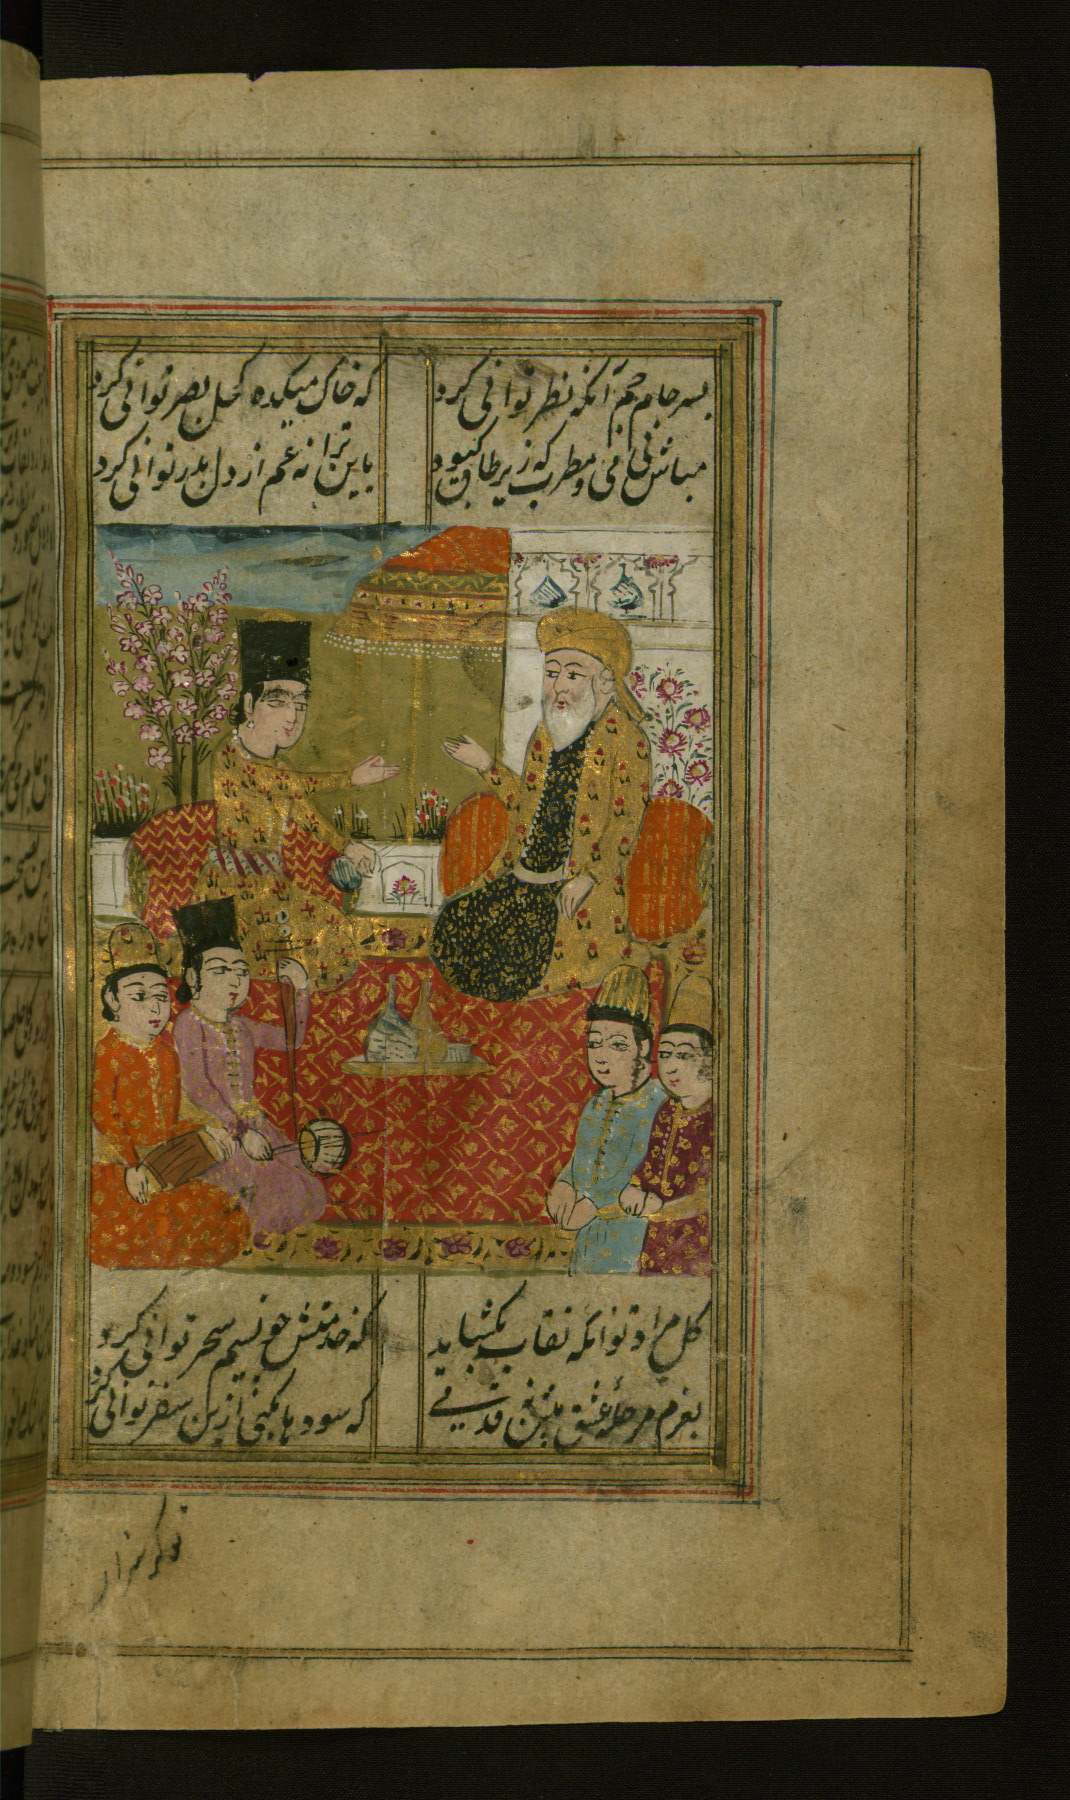 بسر جام جم آنکه نظر توانی کرد
که خاک میکده کحل بصر توانی کرد
مباش بی می و مطرب که زیر طاق کبود
باین ترانه غم از دل بدر توانی کرد
کل مراد تو آنکه نقاب بکشاید
که خدمتش چو نسیم سحر توانی کرد
بعزم مرحلهٔ عشق پیش نه قدمی
که سودها بکنی ار این سفر توانی کرد
تو کز سرای